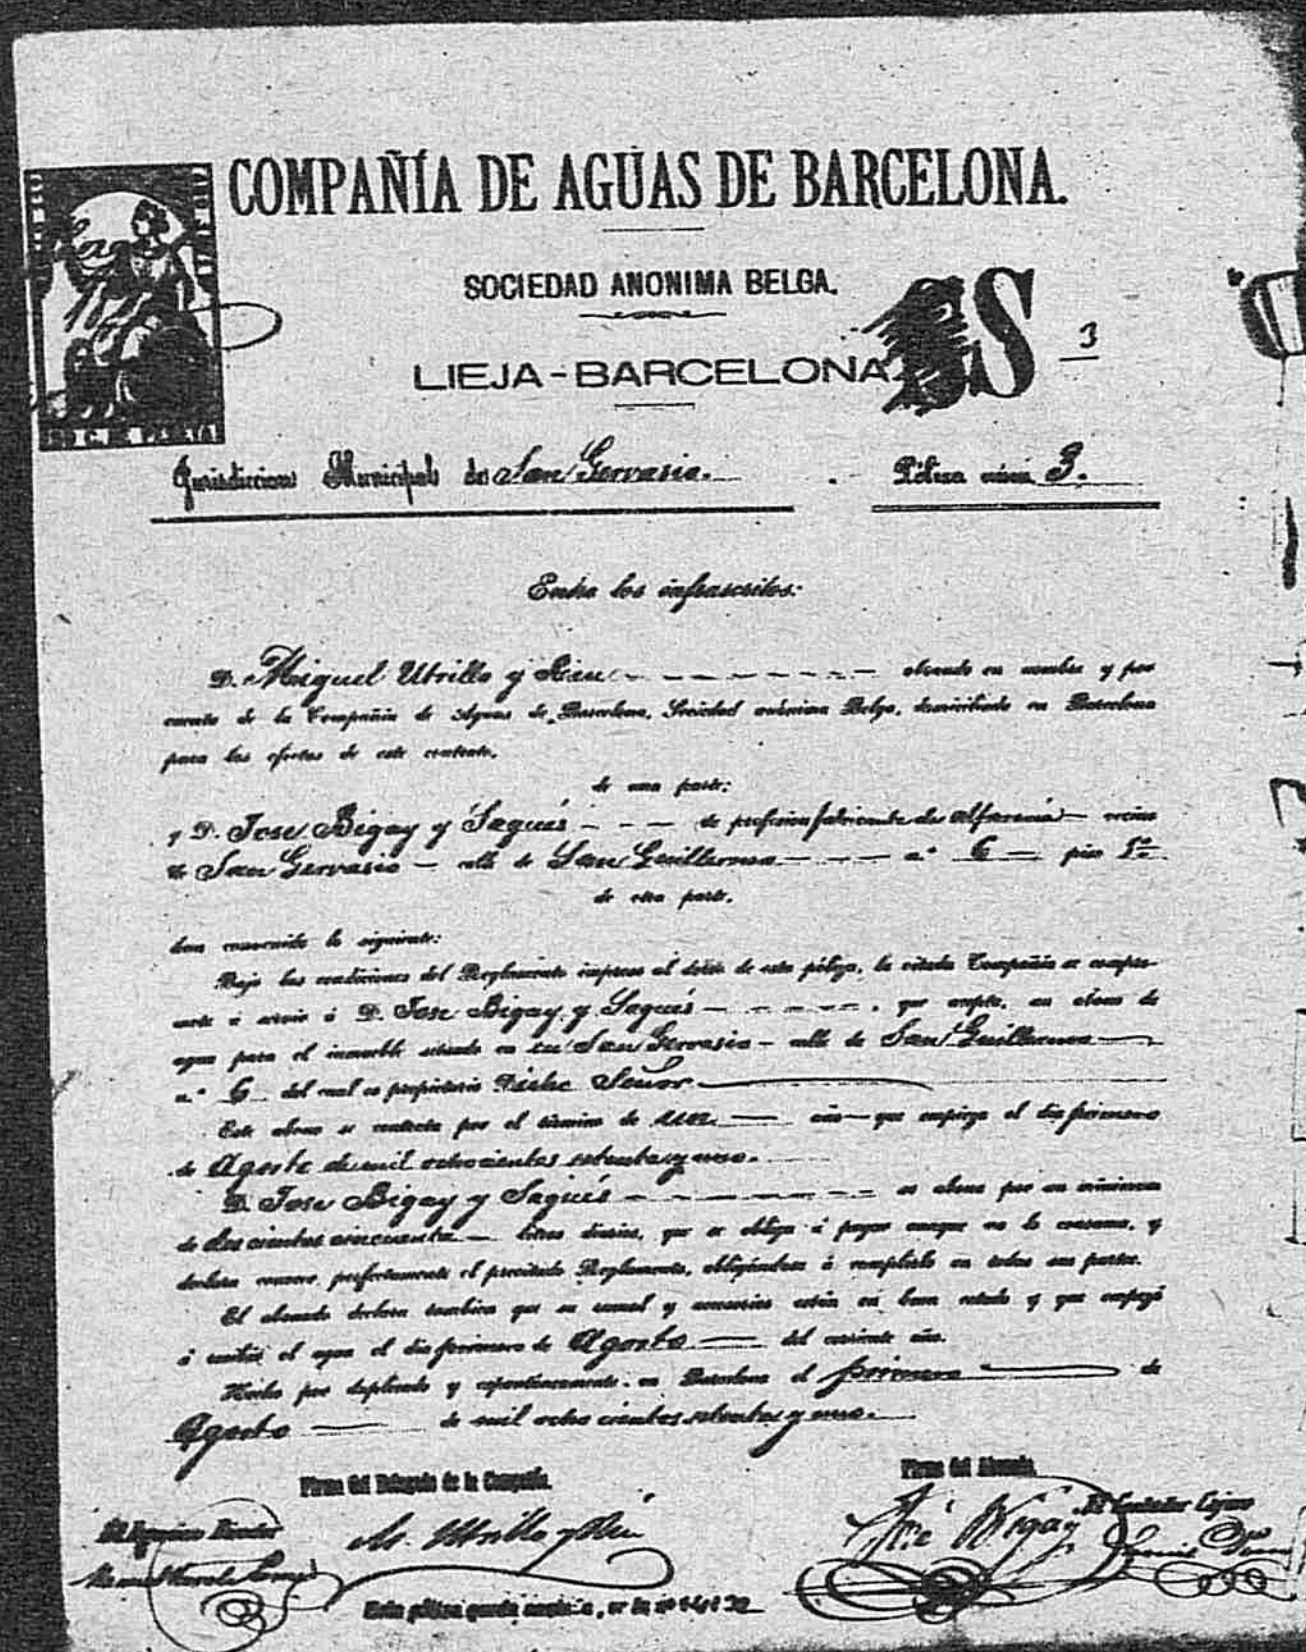 COMPAÑÍA DE AGUAS DE BARCELONA.
SOCIEDAD ANONIMA BELGA.
LIEJA-BARCELONA
S 3
Jurisdiccion Municipal de San Gervasio. Póliza núm 3.
Entre los infrascritos:
D. Miguel Utrillo y Riu obrando en nombre y por
cuenta de la Compañía de Aguas de Barcelona, Sociedad anónima Belga, domiciliada en Barcelona
para los efectos de este contrato,
de una parte:
y D. Jose Bigay y Sagués de profesion fabricante de Alfarería vecino
de San Gervasio calle de San Guillermo n.º 6 piso
de otra parte,
han convenido lo siguiente:
Bajo las condiciones del Reglamento impreso al dorso de esta póliza, la citada Compañía se compro-
mete á servir á D. Jose Bigay y Sagués, que acepta, un abono de
agua para el inmueble situado en San Gervasio calle de San Guillermo
n.º 6 del cual es propietario Dicho Señor.
Este abono se contrata por el término de un año que empieza el dia primero
de Agosto de mil ochocientos setenta y uno.
D. Jose Bigay y Sagués se abona por un mínimum
de doscientos cincuenta litros diarios, que se obliga á pagar aunque no lo consuma, y
declara conocer perfectamente el precitado Reglamento, obligándose á cumplirlo en todas sus partes.
El abonado declara tambien que su ramal y accesorios están en buen estado y que empezó
á utilizar el agua el dia primero de Agosto del corriente año.
Hecho por duplicado y espontáneamente en Barcelona el primero de
Agosto de mil ocho cientos setenta y uno.
Firma del Delegado de la Compañía. Firma del Abonado.
M. Utrillo y Riu José Bigay
Esta póliza queda